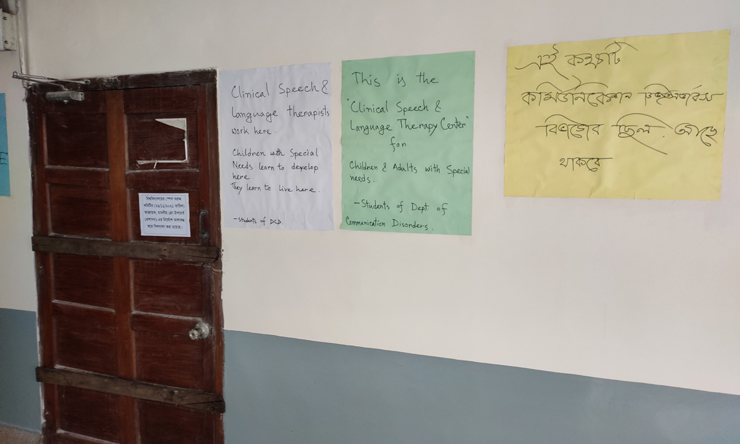 Clinical Speech &
Language Therapists
work here
Children with Special
Needs learn to develop
here
They learn to live here.
- Students of DCD.
This is the
"Clinical Speech &
Language Therapy Center"
for
Children & Adults with Special
needs.
- Students of Dept of
Communication Disorders.
এই কক্ষটি
কমিউনিকেশন ডিজঅর্ডারস
বিভাগের ছিল, আছে
থাকবে